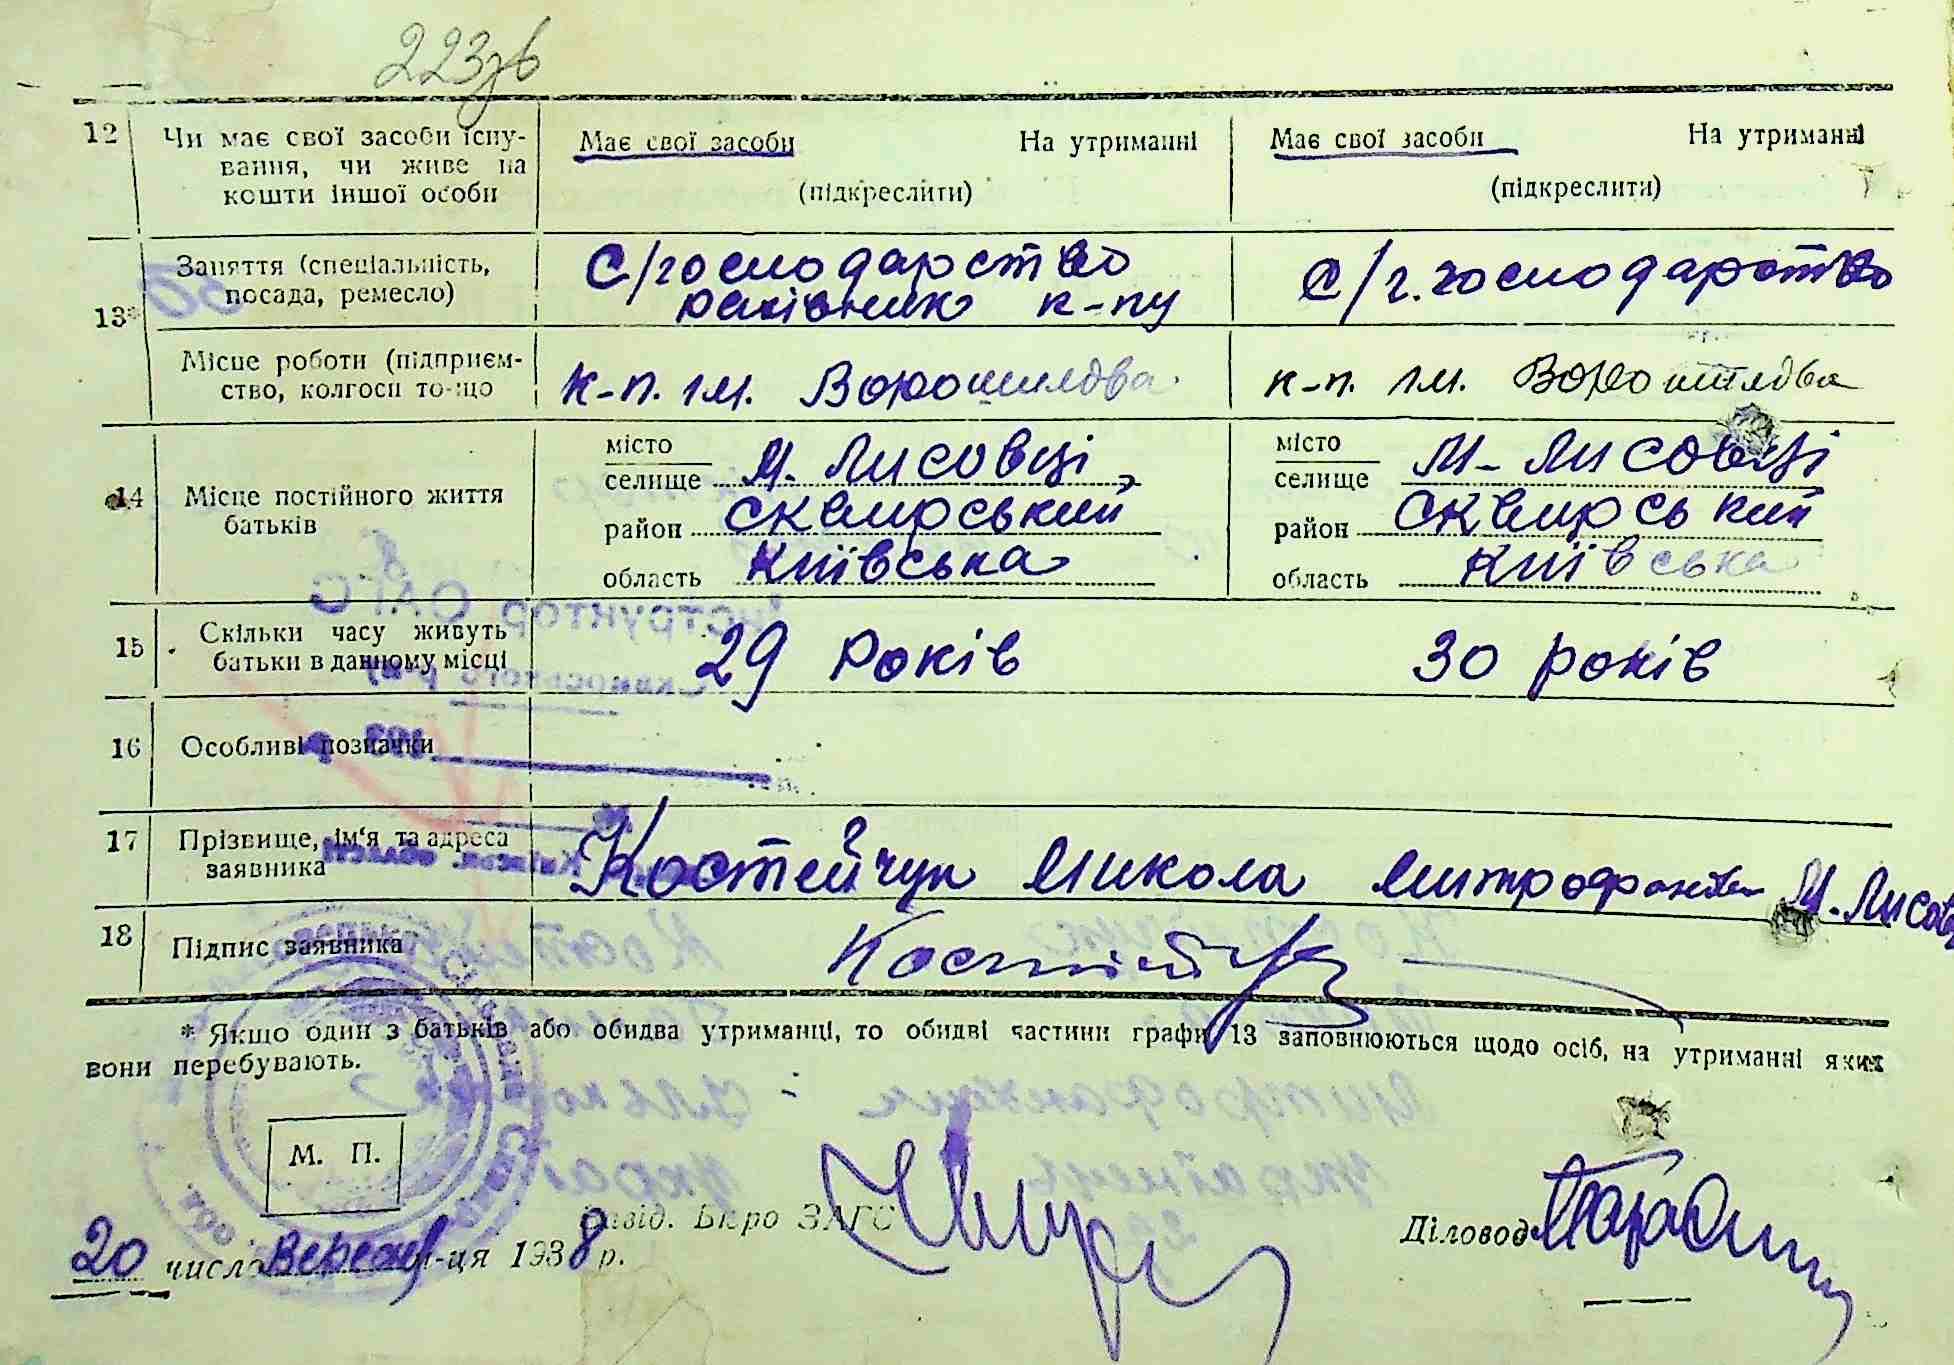 223зв
12 Чи має свої засоби існу-
вання, чи живе на
кошти іншої особи
Має свої засоби На утриманні
(підкреслити)
Має свої засоби На утриманні
(підкреслити)
13* Заняття (спеціальність,
посада, ремесло)
С/господарство
к-пу
С/г. господарство
Місце роботи (підприєм-
ство, колгосп то-що
к-п. ім. Ворошилова
к-п. ім. Ворошилова
14 Місце постійного життя
батьків
місто
селище М. Лисовці
район Сквирський
область Київська
місто
селище М-Лисовці
район Сквирський
область Київська
15 Скільки часу живуть
батьки в данному місці
29 років
30 років
16 Особливі позначки
17 Прізвище, ім'я та адреса
заявника
Костейчук Микола Митрофанович М. Лисов
18 Підпис заявника
* Якщо один з батьків або обидва утриманці, то обидві частини графи 13 заповнюються щодо осіб, на утриманні яких
вони перебувають.
М. П.
Завід. Бюро ЗАГС
Діловод
20 число вересня м-ця 1938 р.